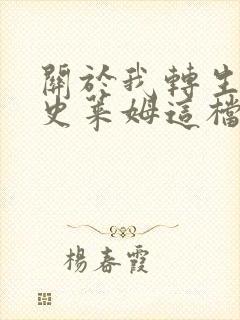 關於我轉生
史萊姆這檔
楊春霞